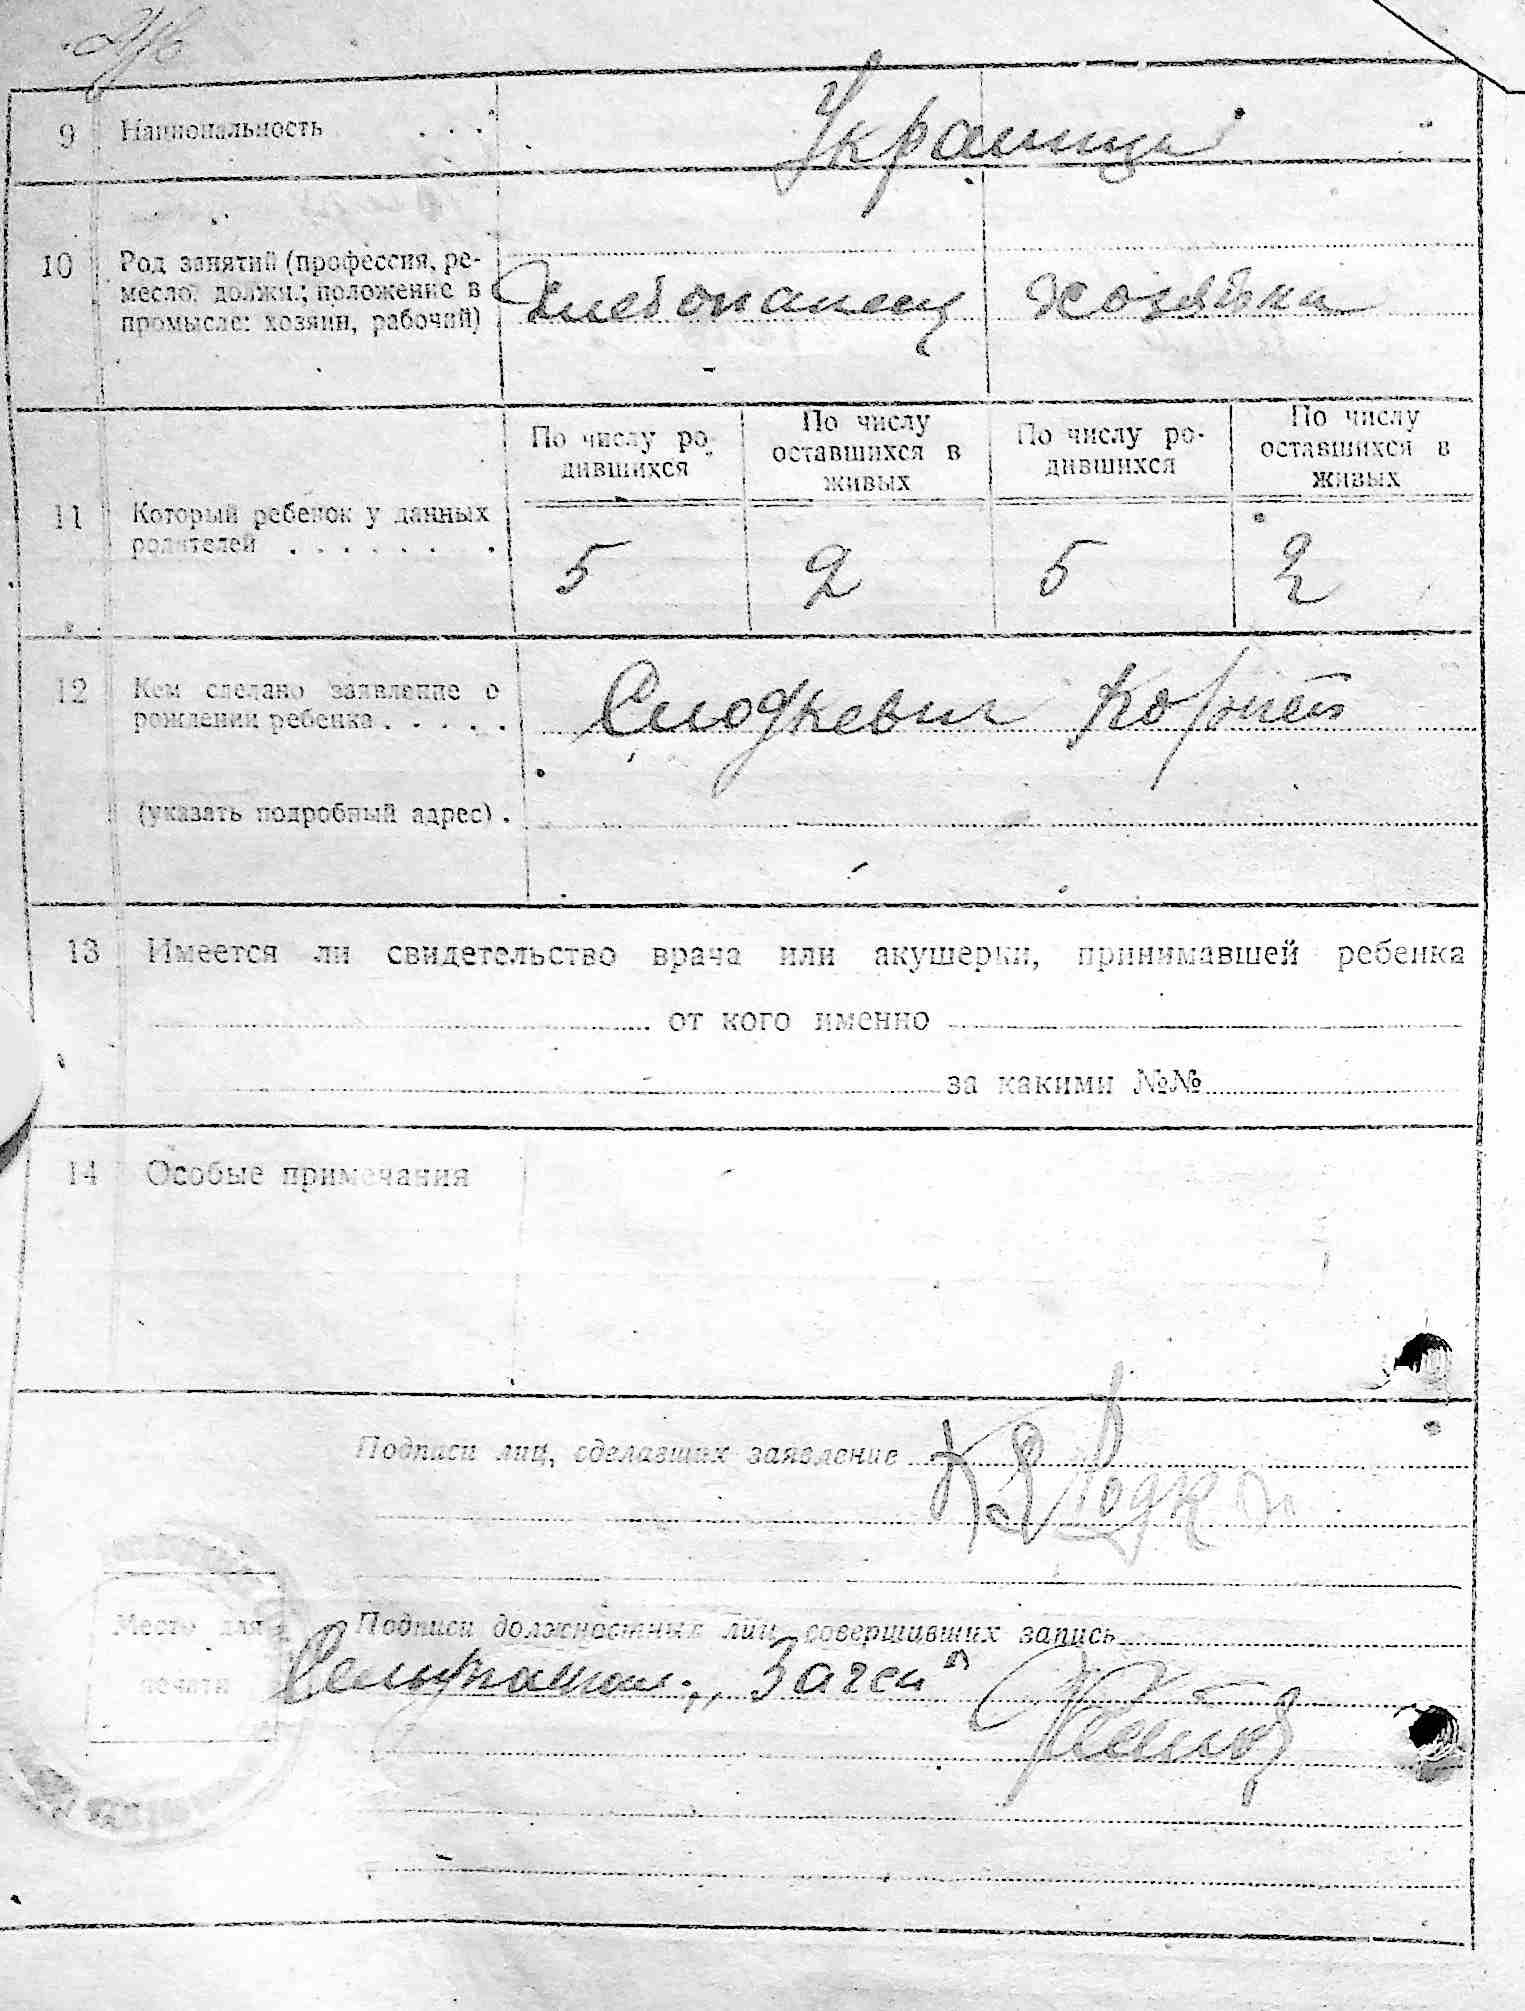 9 Национальность . . .
Украинцы
10 Род занятий (профессия, ре-
месло: должн.; положение в
промысле: хозяин, рабочий)
Хлебопашец Хозяйка
По числу ро-
дившихся
По числу
оставшихся в
живых
По числу ро-
дившихся
По числу
оставшихся в
живых
11 Который ребенок у данных
родителей . . . . . . .
5 2 5 2
12 Кем сделано заявление о
рождении ребенка . . . . .
Слодкевич Корней
(указать подробный адрес) .
13 Имеется ли свидетельство врача или акушерки, принимавшей ребенка
от кого именно
за какими №№
14 Особые примечания
Подписи лиц, сделавших заявление
Место для
печати
Подписи должностных лиц, совершивших запись